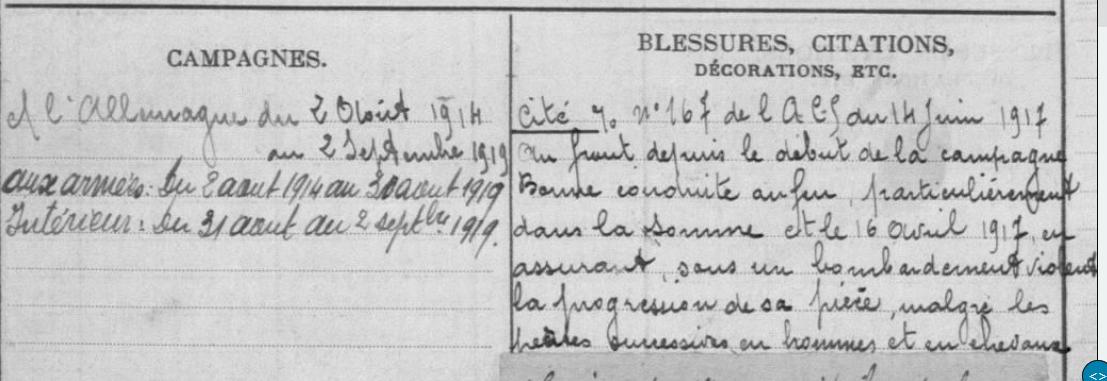 CAMPAGNES.
A l'Allemagne du 2 Août 1914
au 2 Septembre 1919
aux armées: Du 2 aout 1914 au 30 aout 1919
Intérieur: Du 31 aout au 2 septbre 1919.
BLESSURES, CITATIONS,
DÉCORATIONS, ETC.
Cité n° 167 de l du 14 Juin 1917
Au front depuis le début de la campagne
Bonne conduite au feu, particulièrement
dans la Somme et le 16 avril 1917, en
assurant, sous un bombardement violent
la progression de sa pièce, malgré les
pertes successives en hommes et en chevaux